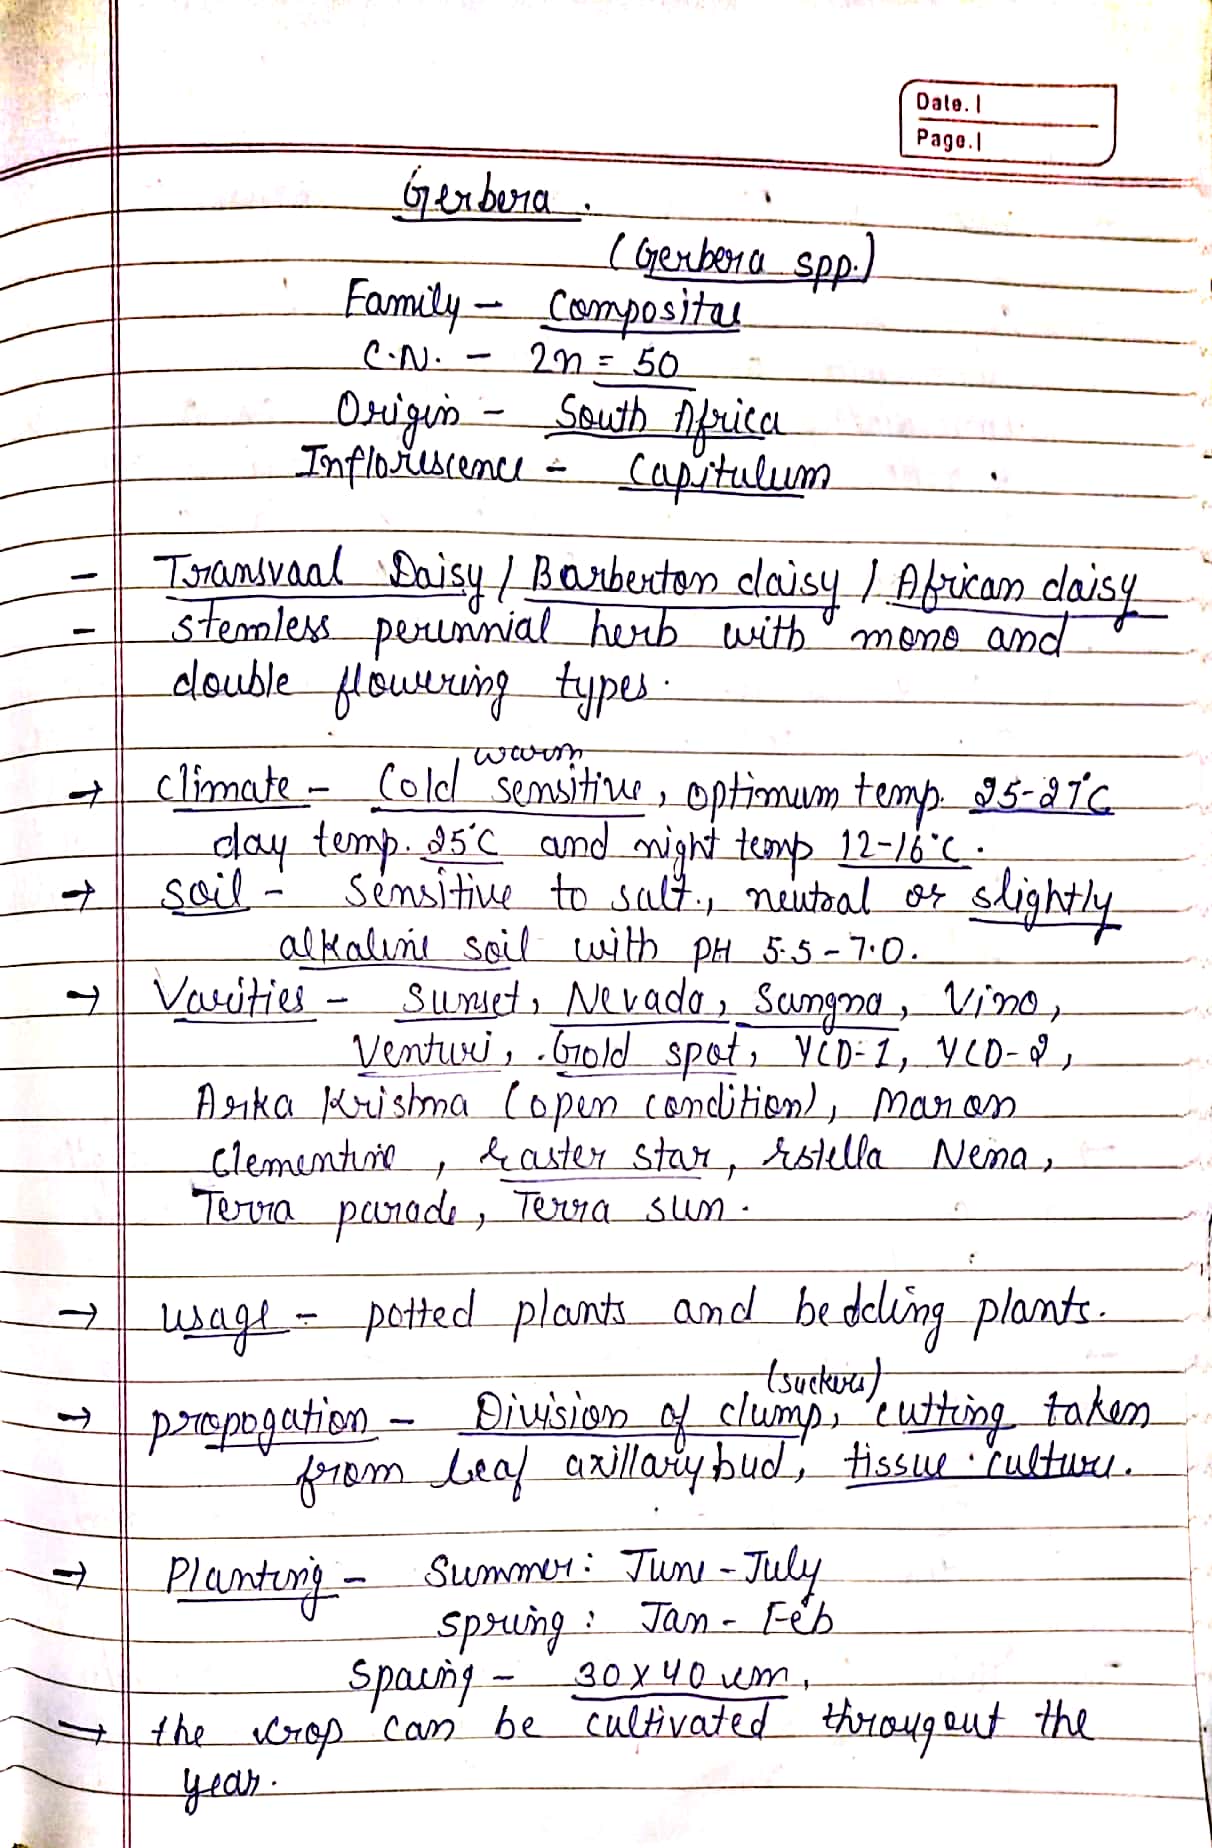 Date.
Page.
Gerbera.
(Gerbera spp.)
Family - Compositae
C.N. - 2n = 50
Origin - South Africa
Inflorescence - Capitulum
- Transvaal Daisy / Barberton daisy / African daisy
- stemless perennial herb with mono and
double flowering types.
warm
→ climate - Cold sensitive, optimum temp. 25-27°C
day temp. 25°C and night temp 12-16°C.
→ soil - Sensitive to salt, neutral or slightly
alkaline soil with pH 5.5-7.0.
→ Varities - Sunset, Nevada, Sangna, Vino,
Venturi, Gold spot, YCD-1, YCD-2,
Arka Krishna (open condition), Maron
Clementine, Easter star, Estella Nena,
Terra parade, Terra sun.
→ usage - potted plants and bedding plants.
(suckers)
→ propogation - Division of clump, cutting taken
from leaf axillary bud, tissue culture.
→ Planting - Summer: June-July
spring: Jan-Feb
Spacing - 30x40 cm.
→ the crop can be cultivated througout the
year.